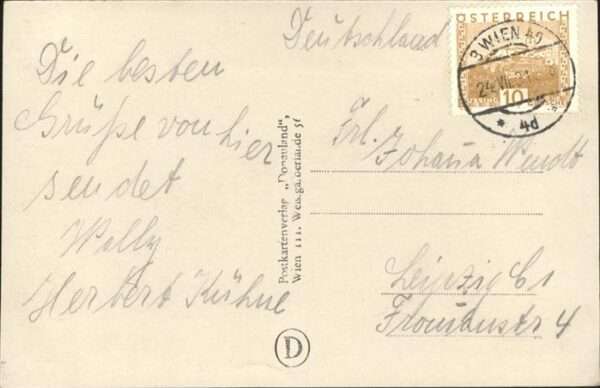 Die besten
Grüße von hier
sendet
Wally
Herbert Kühne
Postkartenverlag „Donauland",
Wien III.
Deutschland
ÖSTERREICH
WIEN 40
24.VII.31
10
* 4d
Frl. Johana Wendt
Leipzig C1
Fromanstr 4
D